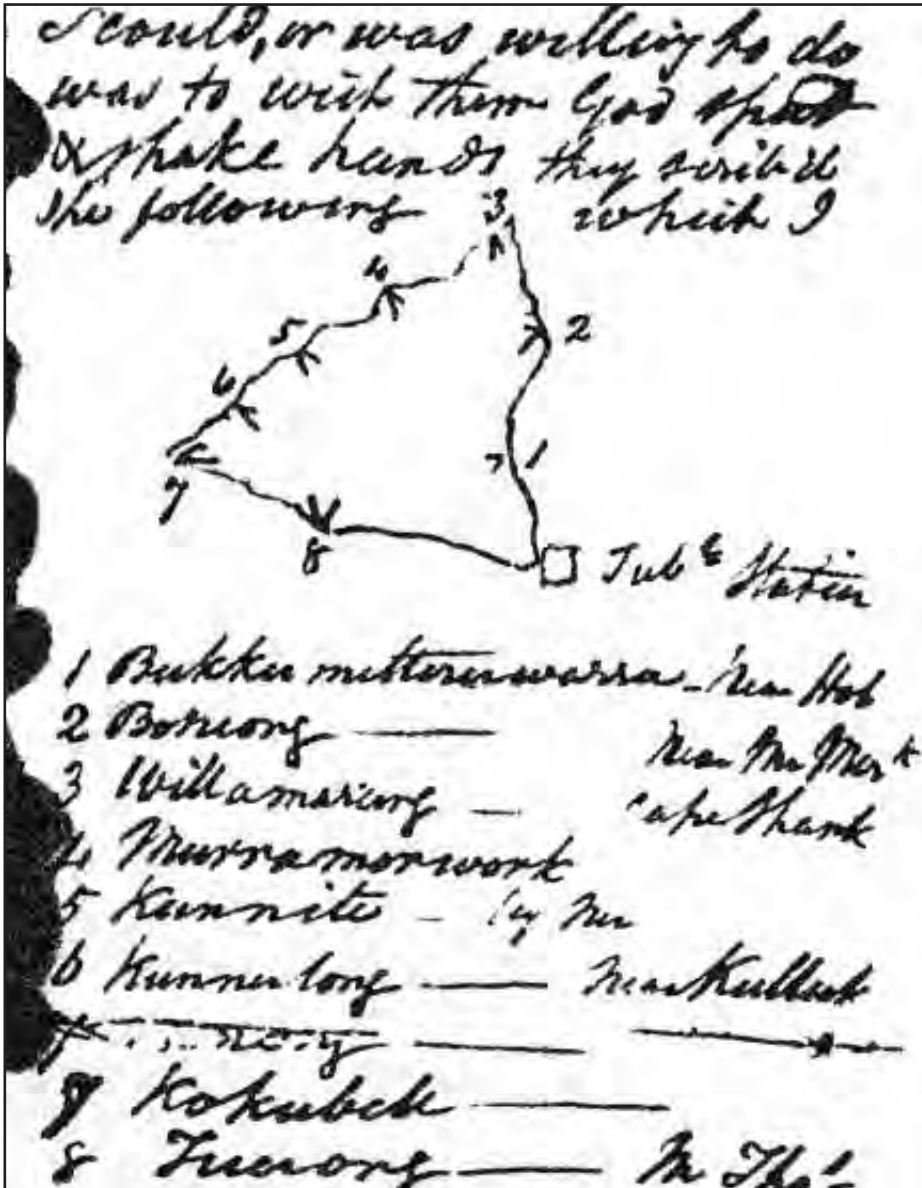 I could, or was willing to do
was to wish them God speed
& shake hands they scrib'd
the following which I
3
4
2
5
6
1
7
8
Tub.g Station
1 Bukku mitterwarra - Near Hob
2 Boneong — Near Mr Mer
3 Willamarang — Cape Shank
4 Murramorwork
5 Kunnite -
6 Kunnerlong — Near Kullurk
7 Kokubele —
8 Tuerong — Mr Tho.s